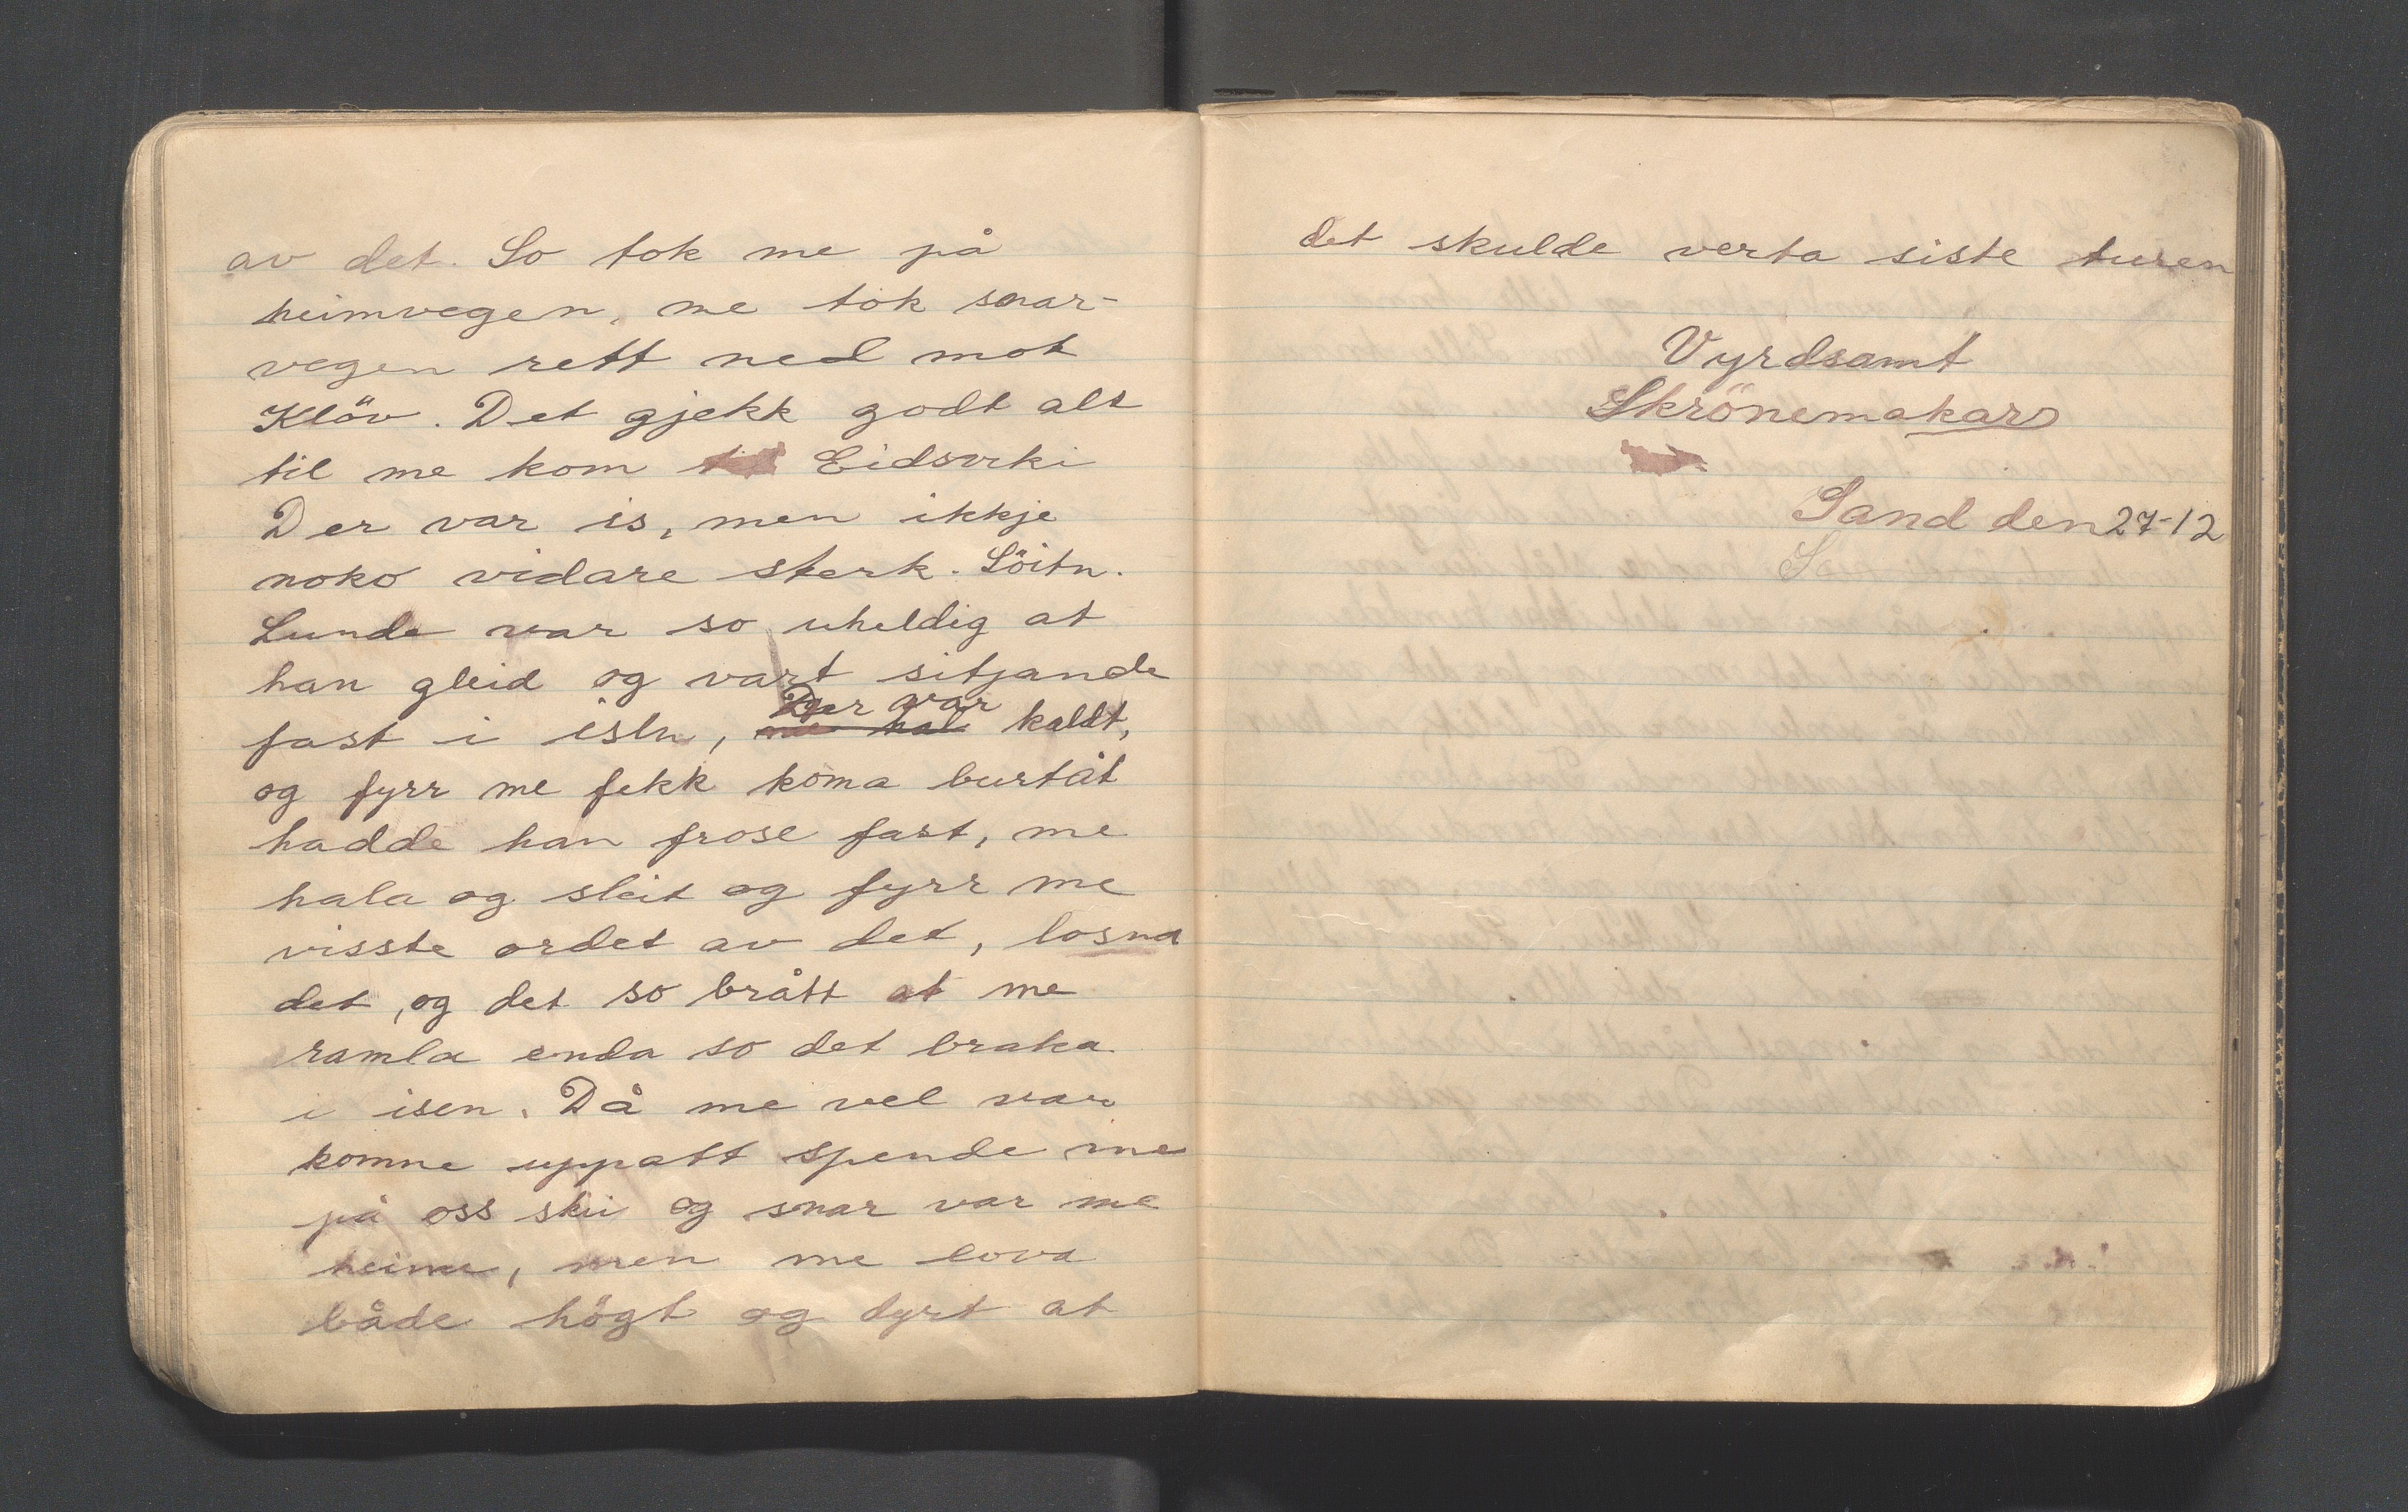 av det. So tok me på
heimvegen, me tok snar-
vegen rett ned mot
Klöv. Det gjekk godt alt
til me kom Eidsvki
Der var is, men ikkje
noko vidare sterk. Löitn.
Lunde var so uheldig at
han gleid og vart sitjande
Der var
fast i isen, kaldt,
og fyrr me fekk koma burtåt
hadde han frose fast, me
hala og sleit og fyrr me
visste ordet av det, losna
det, og det so brått at me
ramla enda so det braka
i isen. Då me vel var
komne uppatt spende me
på oss ski og snar var me
heime, men me lova
både högt og dyrt at
det skulde verta siste turen
Vyrdsamt
Skrönemakar
Sand den 27-12